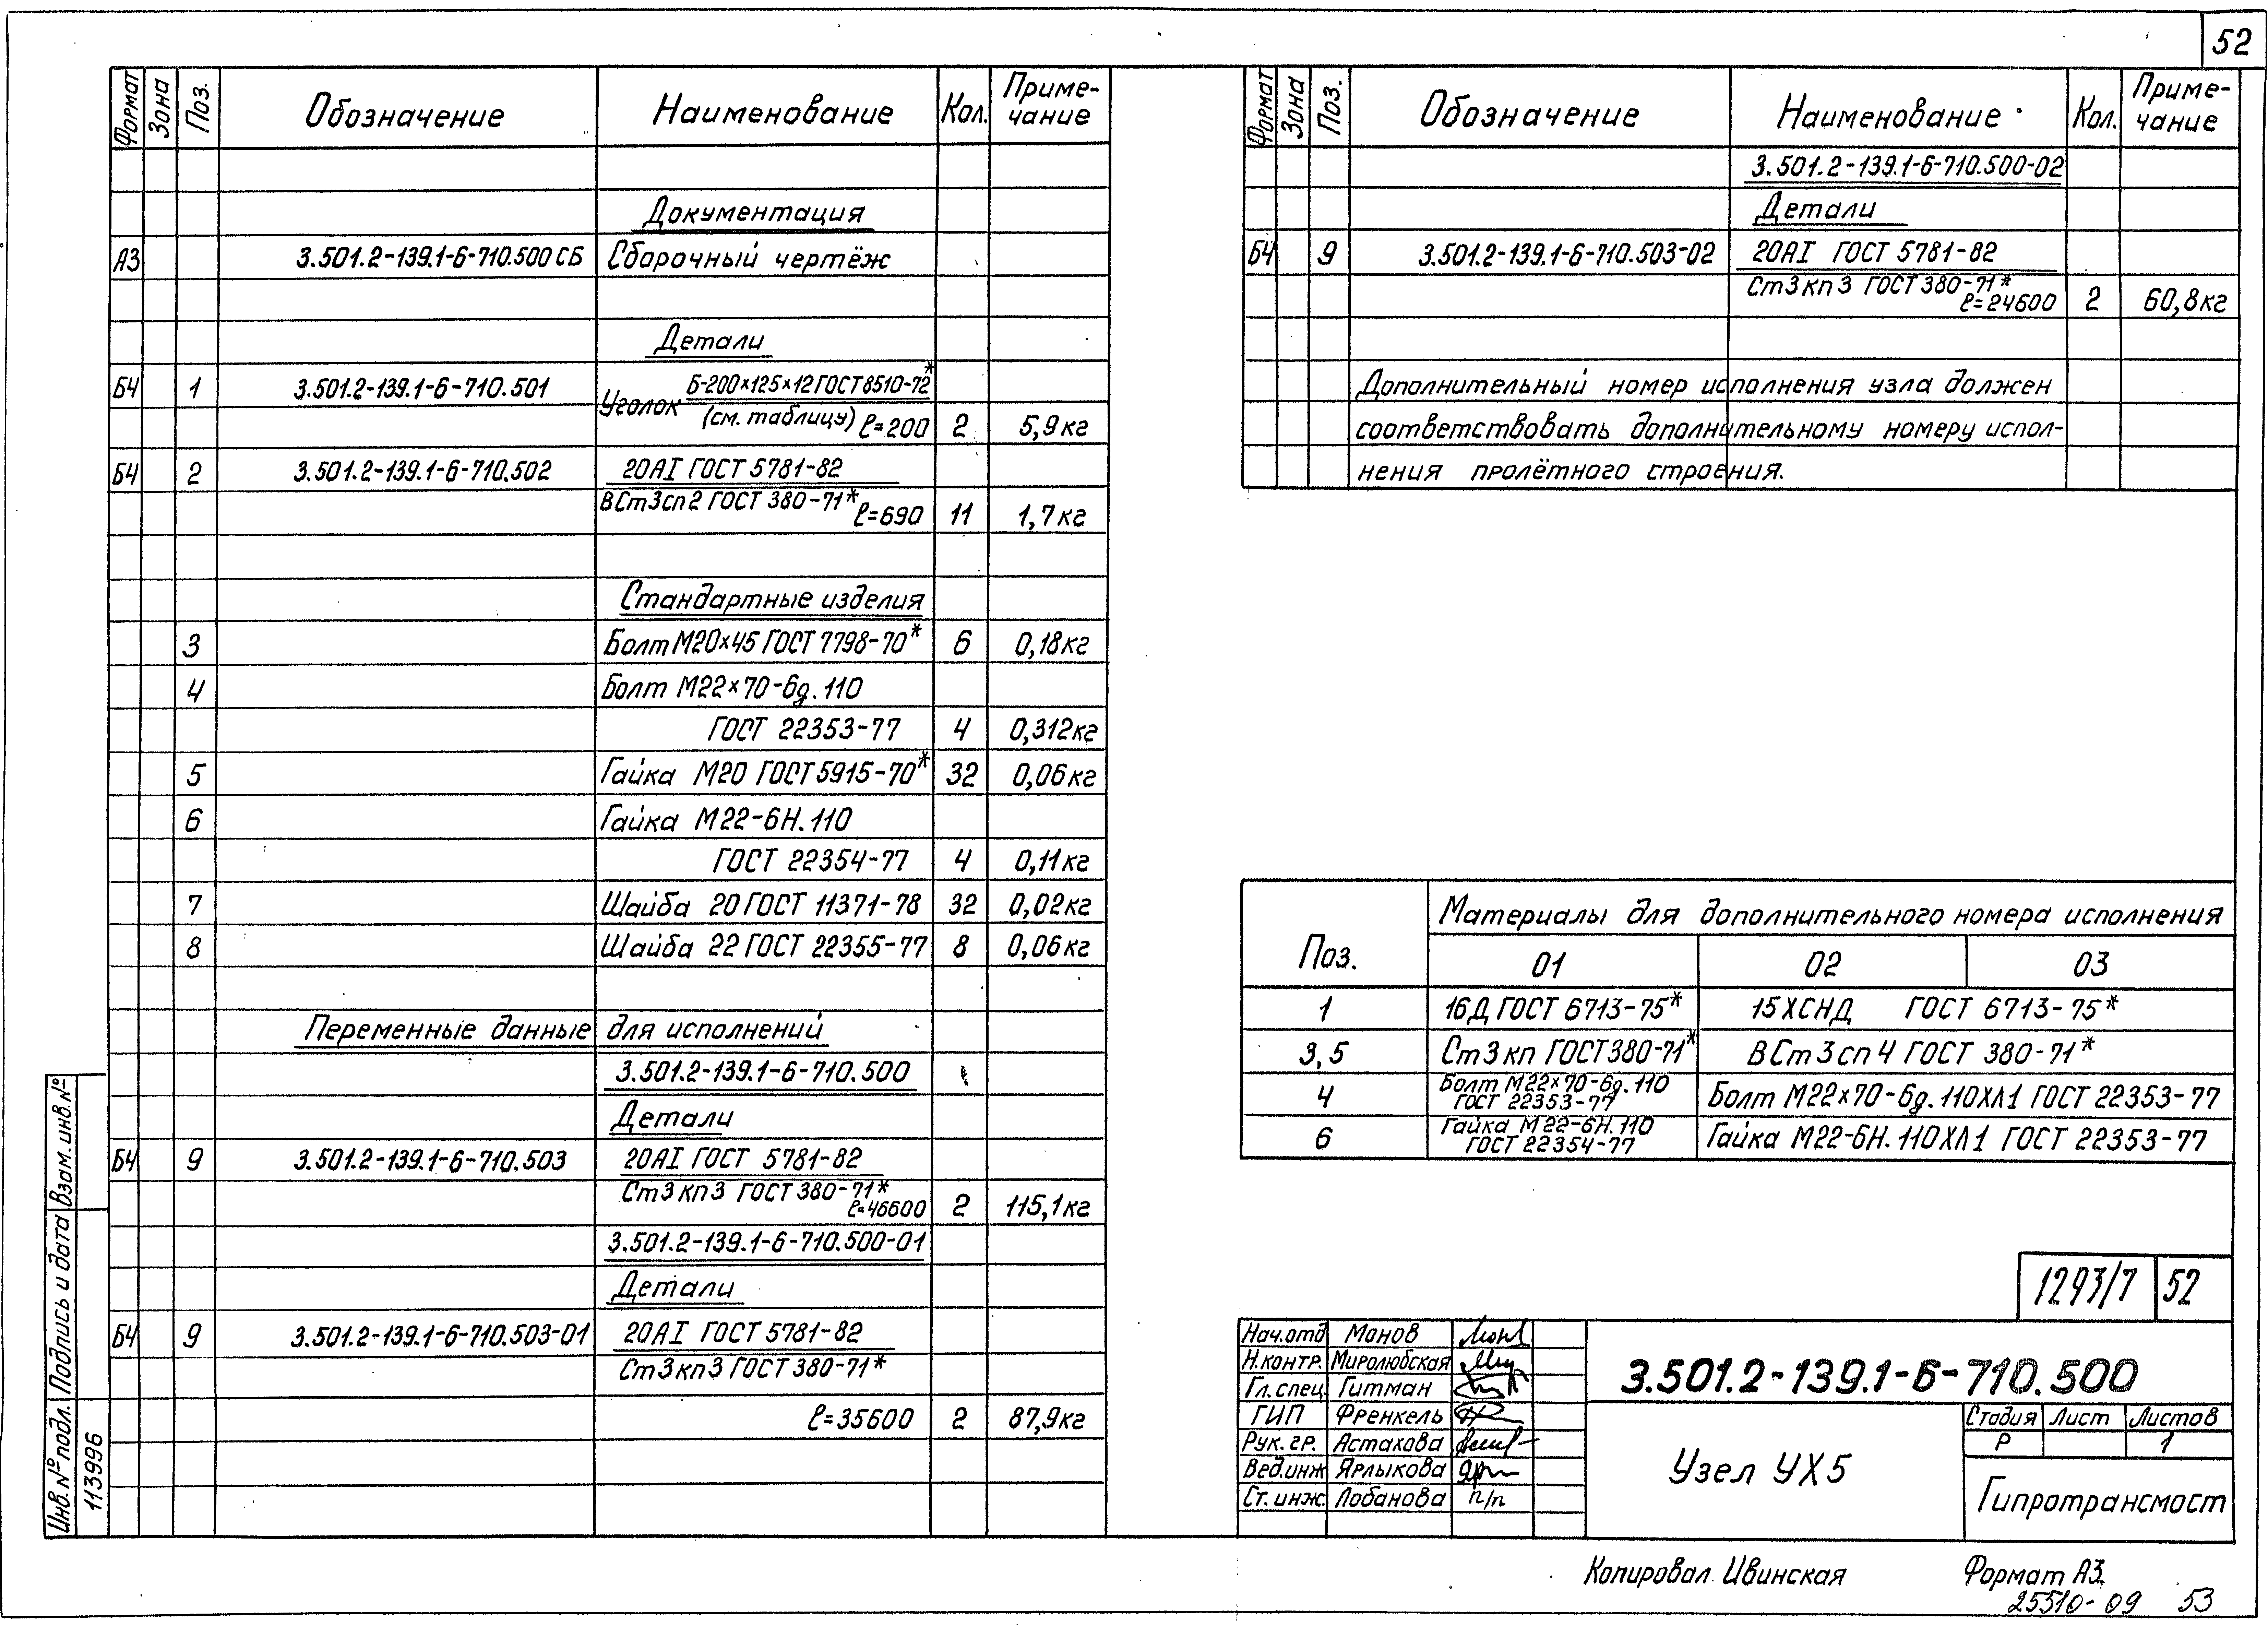 52
Формат Зона Поз. Обозначение Наименование Кол. Приме-чание
Документация
А3 3.501.2-139.1-6-710.500 СБ Сборочный чертёж
Детали
БЧ 1 3.501.2-139.1-6-710.501 Уголок Б-200×125×12 ГОСТ 8510-72*
(см. таблицу) ℓ=200 2 5,9кг
БЧ 2 3.501.2-139.1-6-710.502 20АI ГОСТ 5781-82
ВСт3сп2 ГОСТ 380-71* ℓ=690 11 1,7кг
Стандартные изделия
3 Болт М20×45 ГОСТ 7798-70* 6 0,18кг
4 Болт М22×70-6g.110
ГОСТ 22353-77 4 0,312кг
5 Гайка М20 ГОСТ 5915-70* 32 0,06кг
6 Гайка М22-6Н.110
ГОСТ 22354-77 4 0,11кг
7 Шайба 20 ГОСТ 11371-78 32 0,02кг
8 Шайба 22 ГОСТ 22355-77 8 0,06кг
Переменные данные для исполнений
3.501.2-139.1-6-710.500
Детали
БЧ 9 3.501.2-139.1-6-710.503 20АI ГОСТ 5781-82
Ст3кп3 ГОСТ 380-71* ℓ=46600 2 115,1кг
3.501.2-139.1-6-710.500-01
Детали
БЧ 9 3.501.2-139.1-6-710.503-01 20АI ГОСТ 5781-82
Ст3кп3 ГОСТ 380-71*
ℓ=35600 2 87,9кг
Формат Зона Поз. Обозначение Наименование Кол. Приме-чание
3.501.2-139.1-6-710.500-02
Детали
БЧ 9 3.501.2-139.1-6-710.503-02 20АI ГОСТ 5781-82
Ст3кп3 ГОСТ 380-71* ℓ=24600 2 60,8кг
Дополнительный номер исполнения узла должен
соответствовать дополнительному номеру испол-
нения пролётного строения.
Поз. Материалы для дополнительного номера исполнения
01 02 03
1 16Д ГОСТ 6713-75* 15ХСНД ГОСТ 6713-75*
3,5 Ст3кп ГОСТ 380-71* ВСт3сп4 ГОСТ 380-71*
4 Болт М22×70-6g.110 ГОСТ 22353-77 Болт М22×70-6g.110ХЛ1 ГОСТ 22353-77
6 Гайка М22-6Н.110 ГОСТ 22354-77 Гайка М22-6Н.110ХЛ1 ГОСТ 22353-77
1293/7 52
Нач.отд Монов
Н.контр. Миролюбская
Гл.спец. Гитман
ГИП Френкель
Рук.гр. Астахова
Вед.инж Ярлыкова
Ст.инж. Лобанова п/п
3.501.2-139.1-6-710.500
Узел УХ5
Стадия Лист Листов
Р 1
Гипротрансмост
Инв.№ подл. Подпись и дата Взам.инв.№
113996
Копировал Ивинская Формат А3
25510-09 53